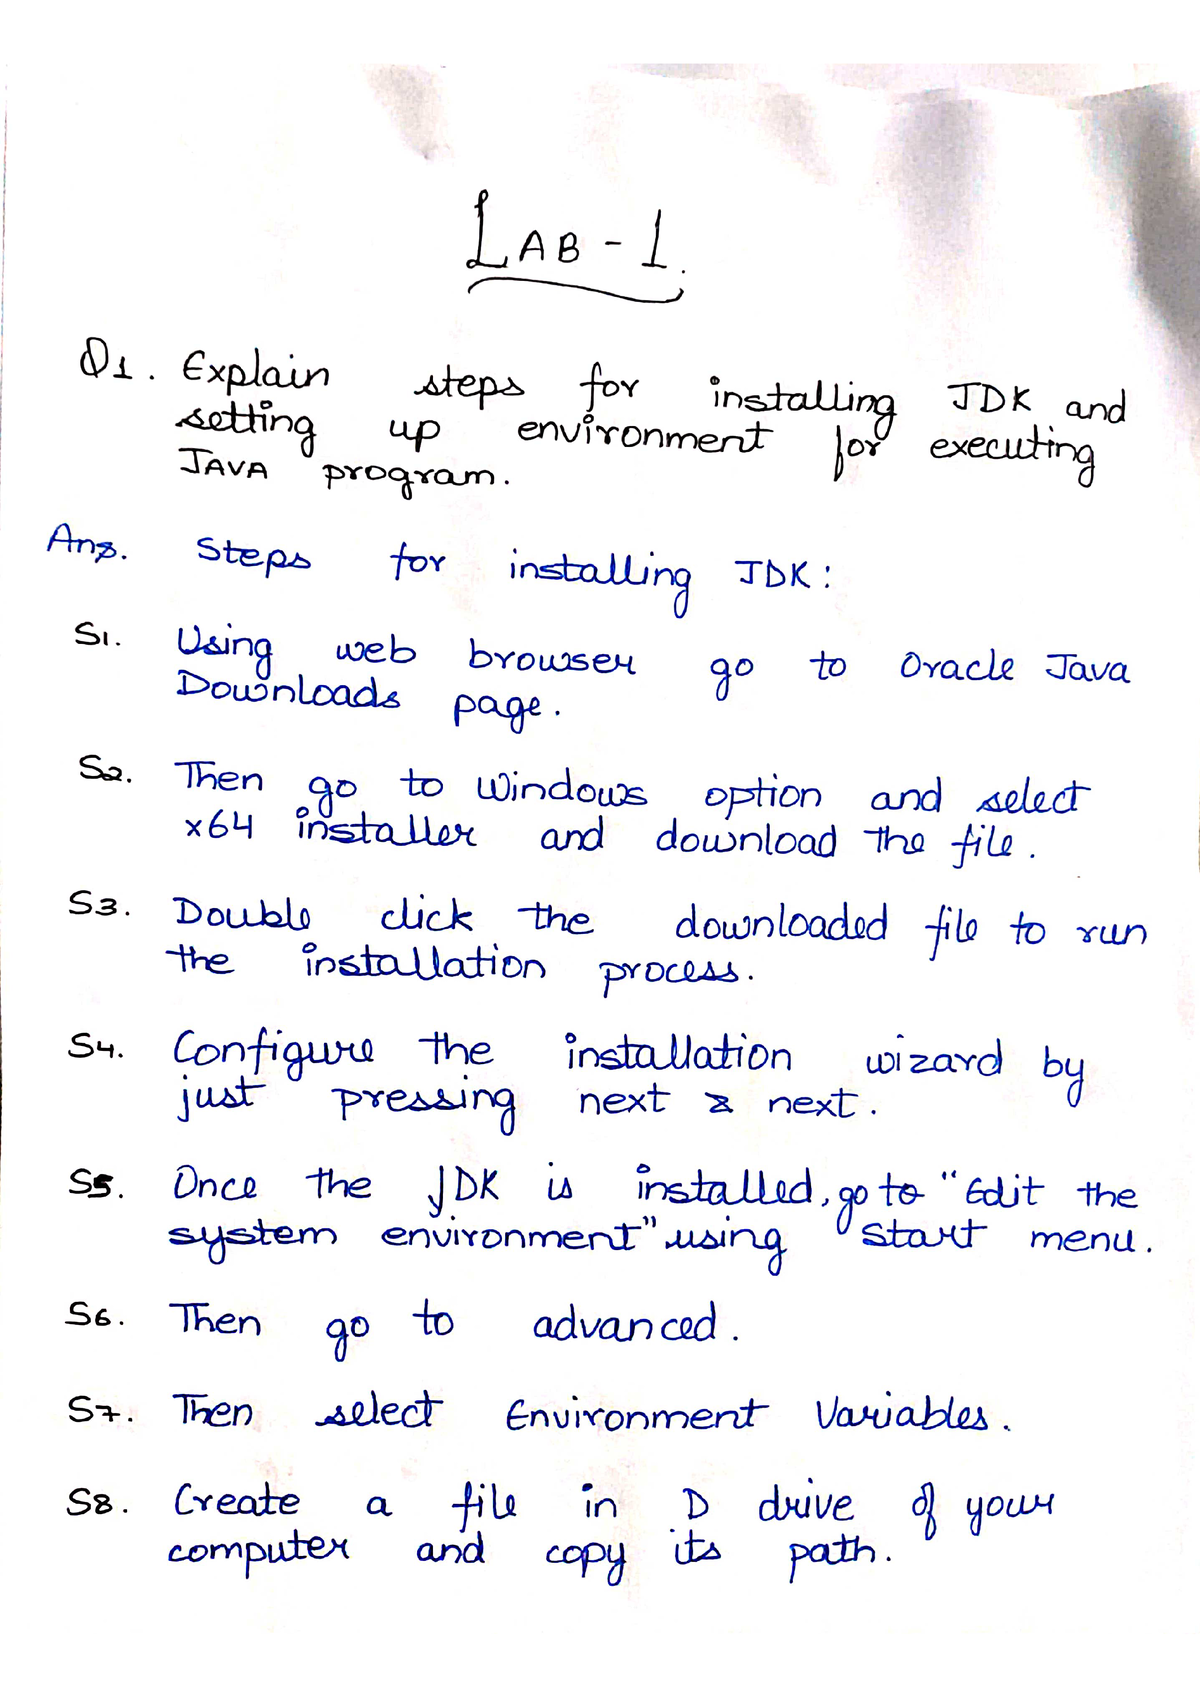 LAB - 1.
Q1. Explain steps for installing JDK and
setting up environment for executing
JAVA program.
Ans. Steps for installing JDK:
S1. Using web browser go to Oracle Java
Downloads page.
S2. Then go to Windows option and select
x64 installer and download the file.
S3. Double click the downloaded file to run
the installation process.
S4. Configure the installation wizard by
just pressing next & next.
S5. Once the JDK is installed, go to "Edit the
system environment" using start menu.
S6. Then go to advanced.
S7. Then select Environment Variables.
S8. Create a file in D drive of your
computer and copy its path.